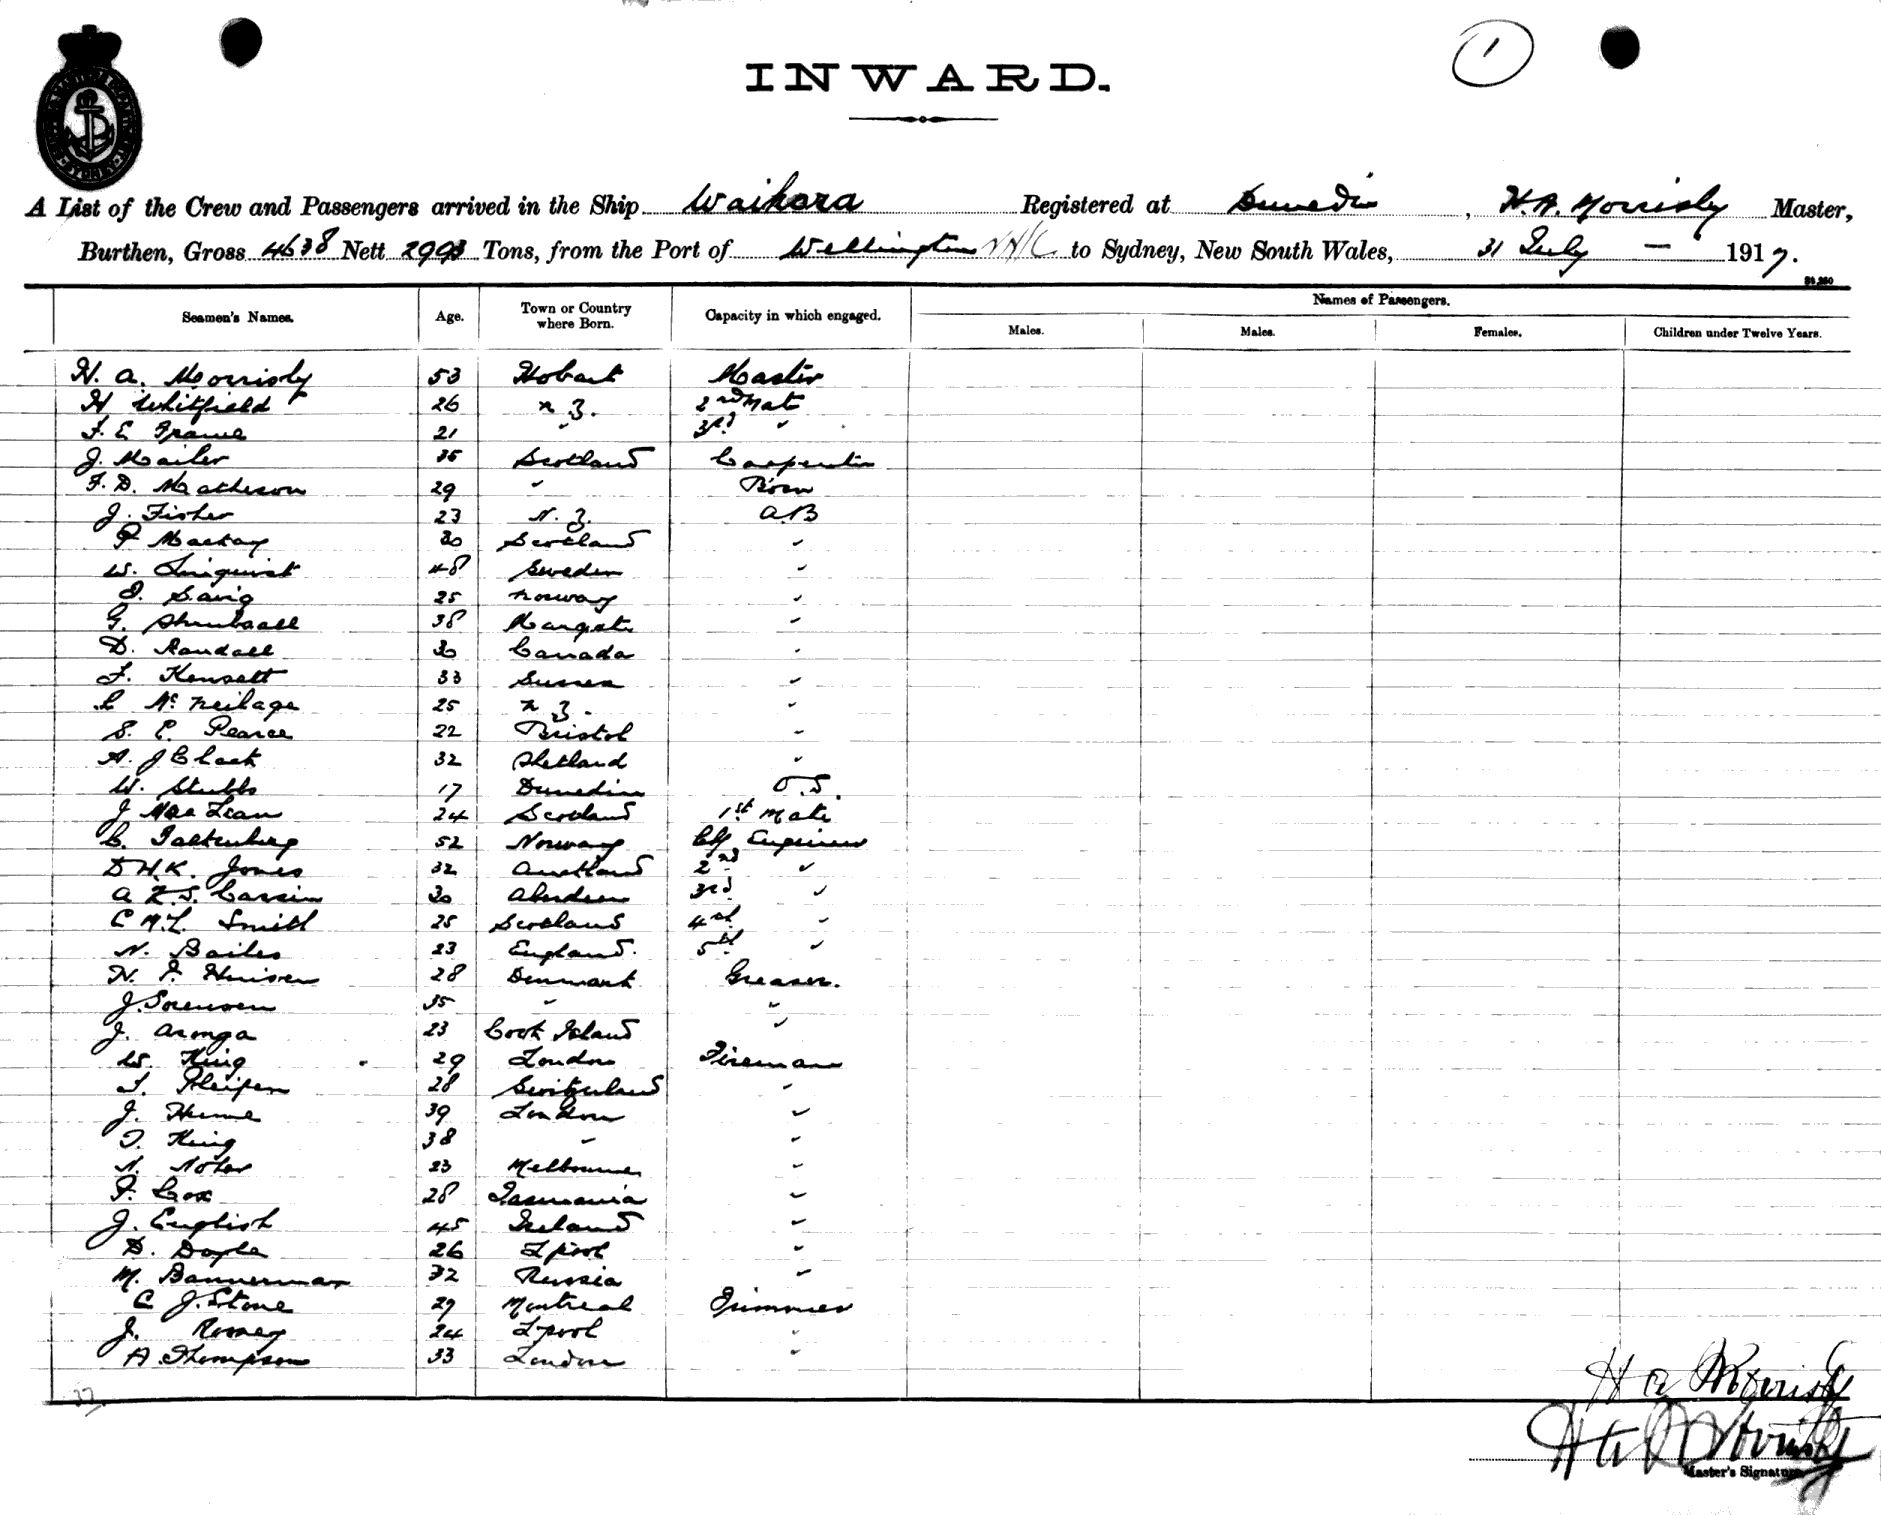 INWARD.
1
A List of the Crew and Passengers arrived in the Ship Waihora Registered at Dunedin, H.A. Morrisby Master,
Burthen, Gross 4638 Nett 2993 Tons, from the Port of Wellington to Sydney, New South Wales, 31 July — 1917.
Names of Passengers.
Seamen's Names. Age. Town or Country where Born. Capacity in which engaged. Males. Males. Females. Children under Twelve Years.
H. A. Morrisby 53 Hobart Master
H. Whitfield 26 N Z. 2nd Mate
F. E Frame 21 " 3rd "
J. Mailer 35 Scotland Carpenter
F. D. Matheson 29 " Bosn
J. Fisher 23 N. Z. A.B
P Mackay 30 Scotland "
W. Linquist 48 Sweden "
25 Norway "
G. Shrubsall 38 Margate "
D. Randall 30 Canada "
F. Kensett 33 Sussex "
C McNeilage 25 N Z. "
S. E. Pearce 22 Bristol "
A. J Clark 32 Shetland "
W. Stubbs 17 Dunedin O.S.
J. MacLean 24 Scotland 1st Mate
C. 52 Norway Chf Engineer
D H.K. Jones 32 Auckland 2nd "
A 30 Aberdeen 3rd "
C M.L. Smith 25 Scotland 4th "
N. Bailes 23 England. 5th "
28 Denmark Greaser.
J. Sorensen 35 " "
J. Aronga 23 Cook Island "
W. King 29 London Fireman
28 Switzerland "
J. Hume 39 London "
T. King 38 " "
23 Melbourne "
F. Cox 28 Tasmania "
J. English 45 Ireland "
D. Doyle 26 Lpool "
M. Bannerman 32 Russia "
C J. Stone 29 Montreal Trimmer
J. Romey 24 Lpool "
A. Thompson 33 London "
37
H A Morrisby
H A Morrisby
Master's Signature